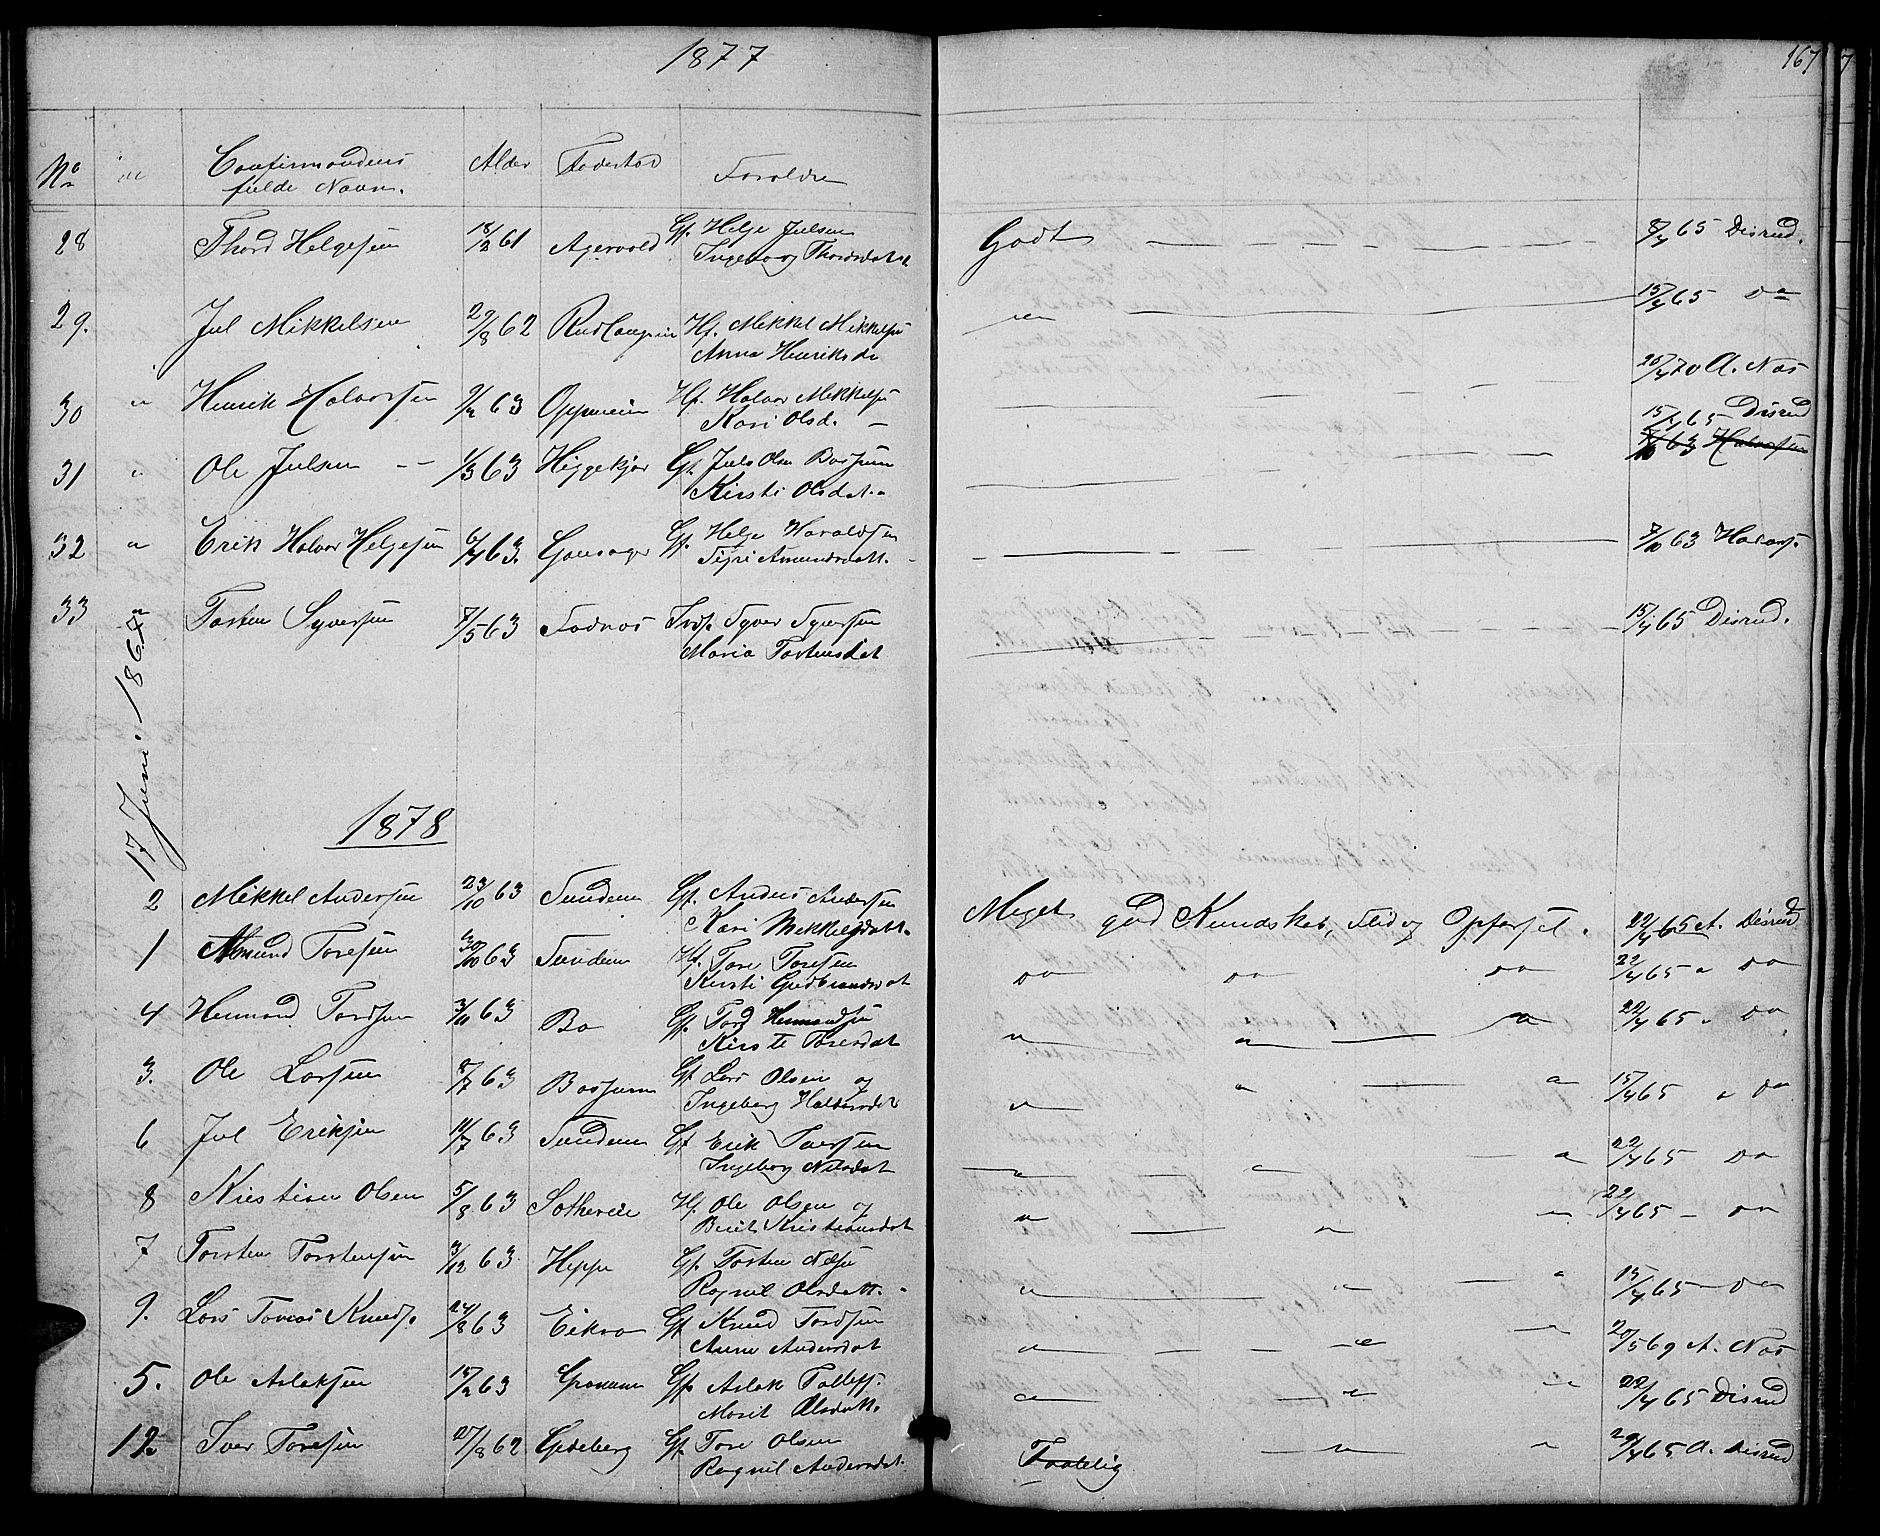 1877
167
No
Confirmandens
fulde Navn.
Alder
Fødested
Forældre
28 Thord Helgesen 18/2 61 Agervold Gf. Helge Julsen
Ingeborg Thordsdatt
Godt 8/4 65 Disrud.
29. Jul Mikkelsen 29/8 62 Hf. Mikkel Mikkelsen
Anna Henriksd.
15/4 65 do
30 " Henrik Halvorsen 63 Oppheim Hf. Halvor Mikkelsen
Kari Olsd.
26/4 70 A. Næs
31 " Ole Julsen 1/3 63 Gf. Juls Olsen
Kirsti Olsdat.
15/4 65 Disrud
7/10 63 Halvorsen
32 " Erik Halvor Helgesen 6/4 63. Gf. Helge Haraldsen
Sigri Amundsdatt.
7/10 63 Halvors.
33 Torsten Syversen 7/5 63 Fodnæs Inds. Syver Syversen
Maria Torstensdat
15/4 65 Disrud.
17 Juni
1878
2 Mikkel Andersen 23/10 63 Sundem Gf. Anders Andersen
Kari Mikkelsdatt.
Meget god Kundskab, Flid og Opførsel. 22/4 65 A. Disrud
1 Amund Toresen 63 Sundem Hf. Tore Toresen
Kirsti Gudbrandsdat
do do do 22/4 65 " do
4 Hermand Tordsen 3/10 63 Bø Gf. Tord Hermandsen
Kirsti Toresdat
" " " 22/4 65 " do
3. Ole Larsen 8/7 63 Gf. Lars Olsen og
Ingeborg Halvorsdat
" " " 15/4 65 " do
6 Jul Eriksen 14/7 63 Sundem Gf Erik Iversen
Ingeborg Nilsdat
" " " 22/4 65 – do
8 Kristian Olsen 5/8 63 Hf. Ole Olsen og
Berit Kristiansdat
" " " 22/4 65 – do
7 Torsten Torstensen 3/12 63 Gf. Torsten Nilsen
Ragnil Olsdatt.
" " " 15/4 65 – do
9. Lars Knuds. 24/8 63 Eikro Gf Knud Tordsen
Anne Andersdat
" " " 20/5 69 A. Næs
5. Ole Aslaksen 15/2 63 Gf. Aslak
Marit Olsdatt.
" " " 22/4 65 Disrud
12. Iver Toresen 27/8 62 Gudeberg Gf. Tore Olsen
Ragnil Andersdat.
Taalelig " " 29/4 65 A. Disrud